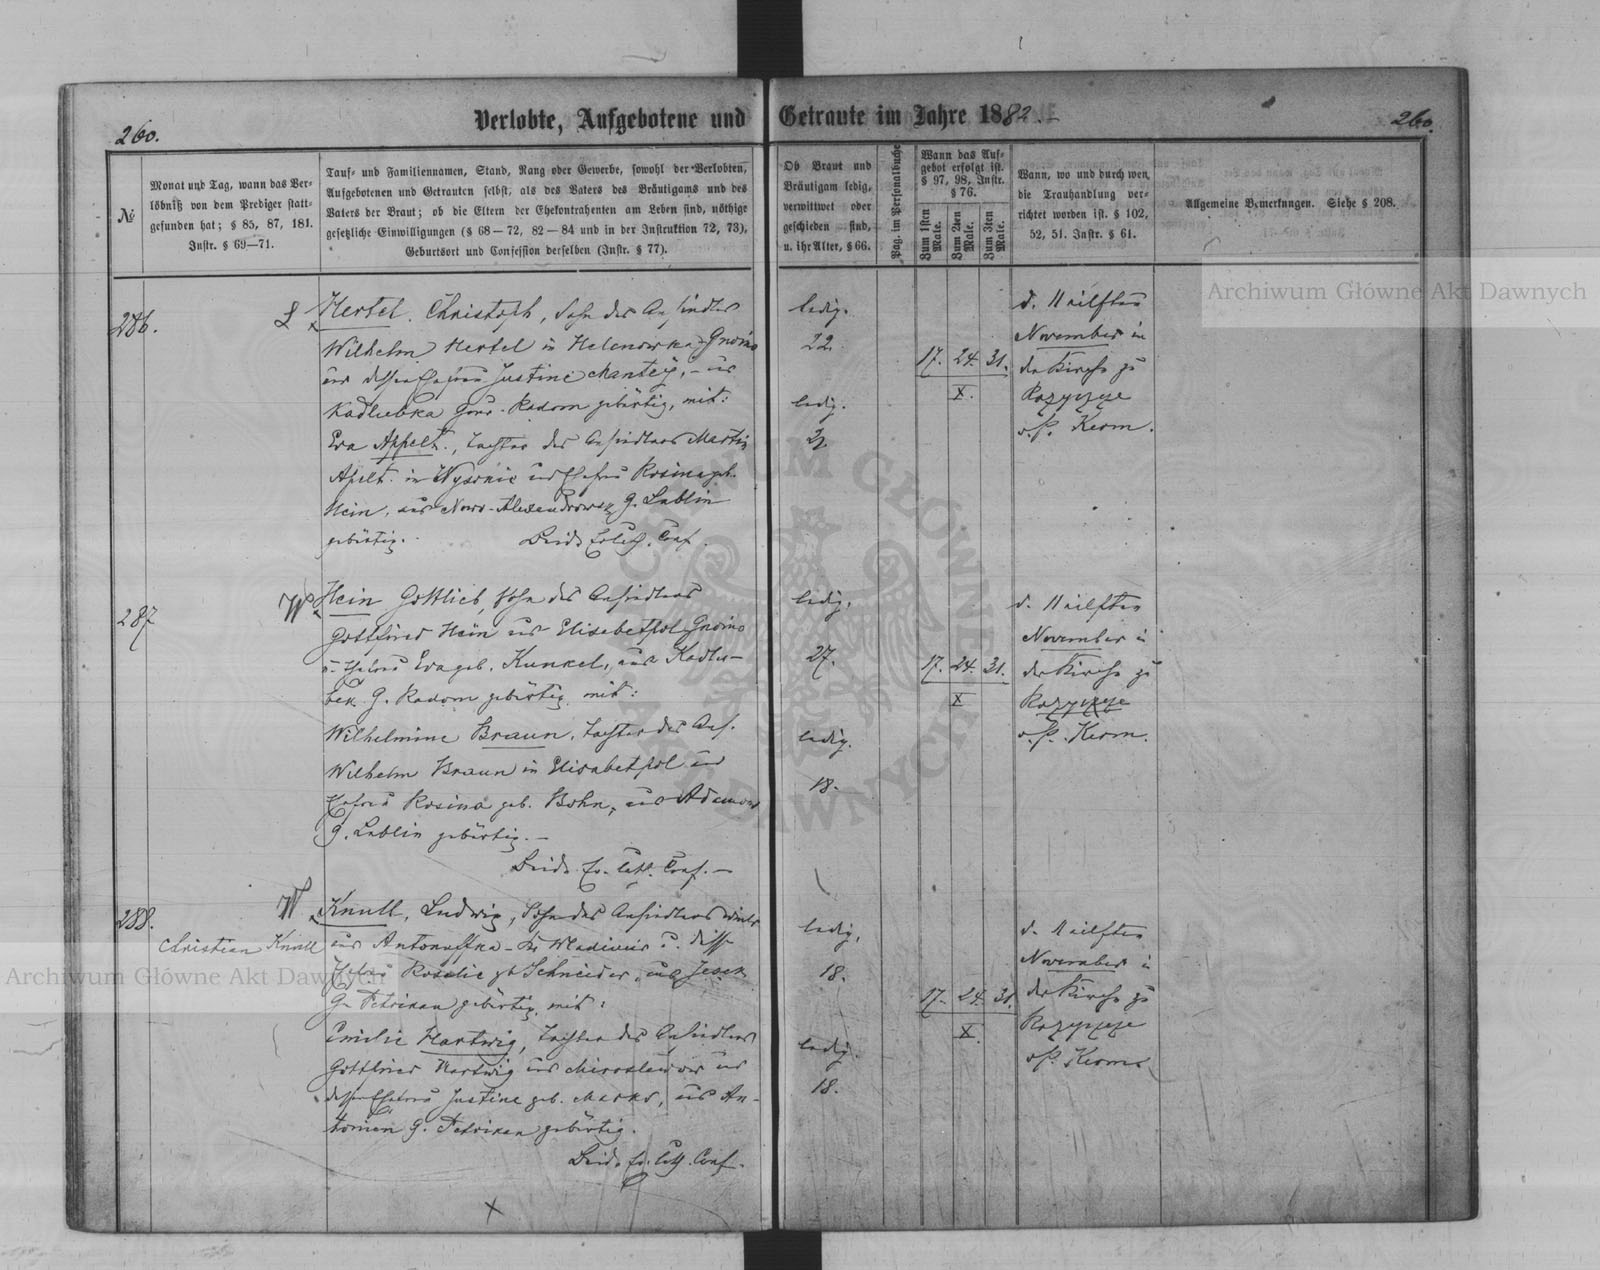 260.
Verlobte, Aufgebotene und Getraute im Jahre 1882.
260.
№
Monat und Tag, wann das Ver-
löbniß von dem Prediger statt-
gefunden hat; § 85, 87, 181.
Instr. § 69—71.
Tauf- und Familiennamen, Stand, Rang oder Gewerbe, sowohl der Verlobten,
Aufgebotenen und Getrauten selbst, als des Vaters des Bräutigams und des
Vaters der Braut; ob die Eltern der Ehekontrahenten am Leben sind, nöthige
gesetzliche Einwilligungen (§ 68—72, 82—84 und in der Instruktion 72, 73),
Geburtsort und Confession derselben (Instr. § 77).
Ob Braut und
Bräutigam ledig,
verwittwet oder
geschieden sind,
u. ihr Alter, § 66.
Pag. im Personalbuche
Wann das Auf-
gebot erfolgt ist.
§ 97, 98, Instr.
§ 76.
Zum 1sten Male.
Zum 2ten Male.
Zum 3ten Male.
Wann, wo und durch wen
die Trauhandlung ver-
richtet worden ist. § 102,
52, 51. Instr. § 61.
Allgemeine Bemerkungen. Siehe § 208.
286.
Hertel, Christoph, Sohn des Ansiedlers
Wilhelm Hertel in Helenowka-Gnoino
und dessen Ehefrau Justine Mantey, aus
Kadlubka Gouv. Radom gebürtig, mit:
Eva Appelt, Tochter des Ansiedlers Martin
Apelt in und Ehefrau Rosina geb.
Hein, aus Nowo-Alexandrowsk G. Lublin
gebürtig. Beide Conf.
ledig.
22.
ledig.
17. 24. 31.
X.
d. 11 eilften
November in
der Kirche zu
Rozyszcze
v. P. Kerm.
287
W
Hein Gottlieb, Sohn des Ansiedlers
Gottfried Hein aus Elisabethpol Gnoino
u. Ehefrau Eva geb. Kunkel, aus Kadlu-
bek G. Radom gebürtig mit:
Wilhelmine Braun, Tochter des Ans.
Wilhelm Braun in Elisabethpol und
Ehefrau Rosina geb. Bohn, aus
G. Lublin gebürtig.—
Beide Ev. Luth. Conf.—
ledig,
27.
ledig.
18.
17. 24. 31.
X
d. 11 eilften
November in
der Kirche zu
Rozyszcze
v. P. Kerm.
288.
W
Christian Knull
Knull, Ludwig, Sohn des Ansiedlers
aus Antonuffka u.
Ehefrau Rosalie gb Schneider, aus
G. Petrikau gebürtig, mit:
Emilie Hartwig, Tochter des Ansiedlers
Gottfried Hartwig aus und
dessen Ehefrau Justine geb. Marks, aus An-
tonien G. Petrikau gebürtig.
Beide Ev. Luth. Conf.
ledig,
18.
ledig.
18.
17. 24. 31.
X.
d. 11 eilften
November in
der Kirche zu
Rozyszcze
v. P. Kerm.
X
Archiwum Główne Akt Dawnych
Archiwum Główne Akt Dawnych
ARCHIWUM GŁÓWNE AKT DAWNYCH